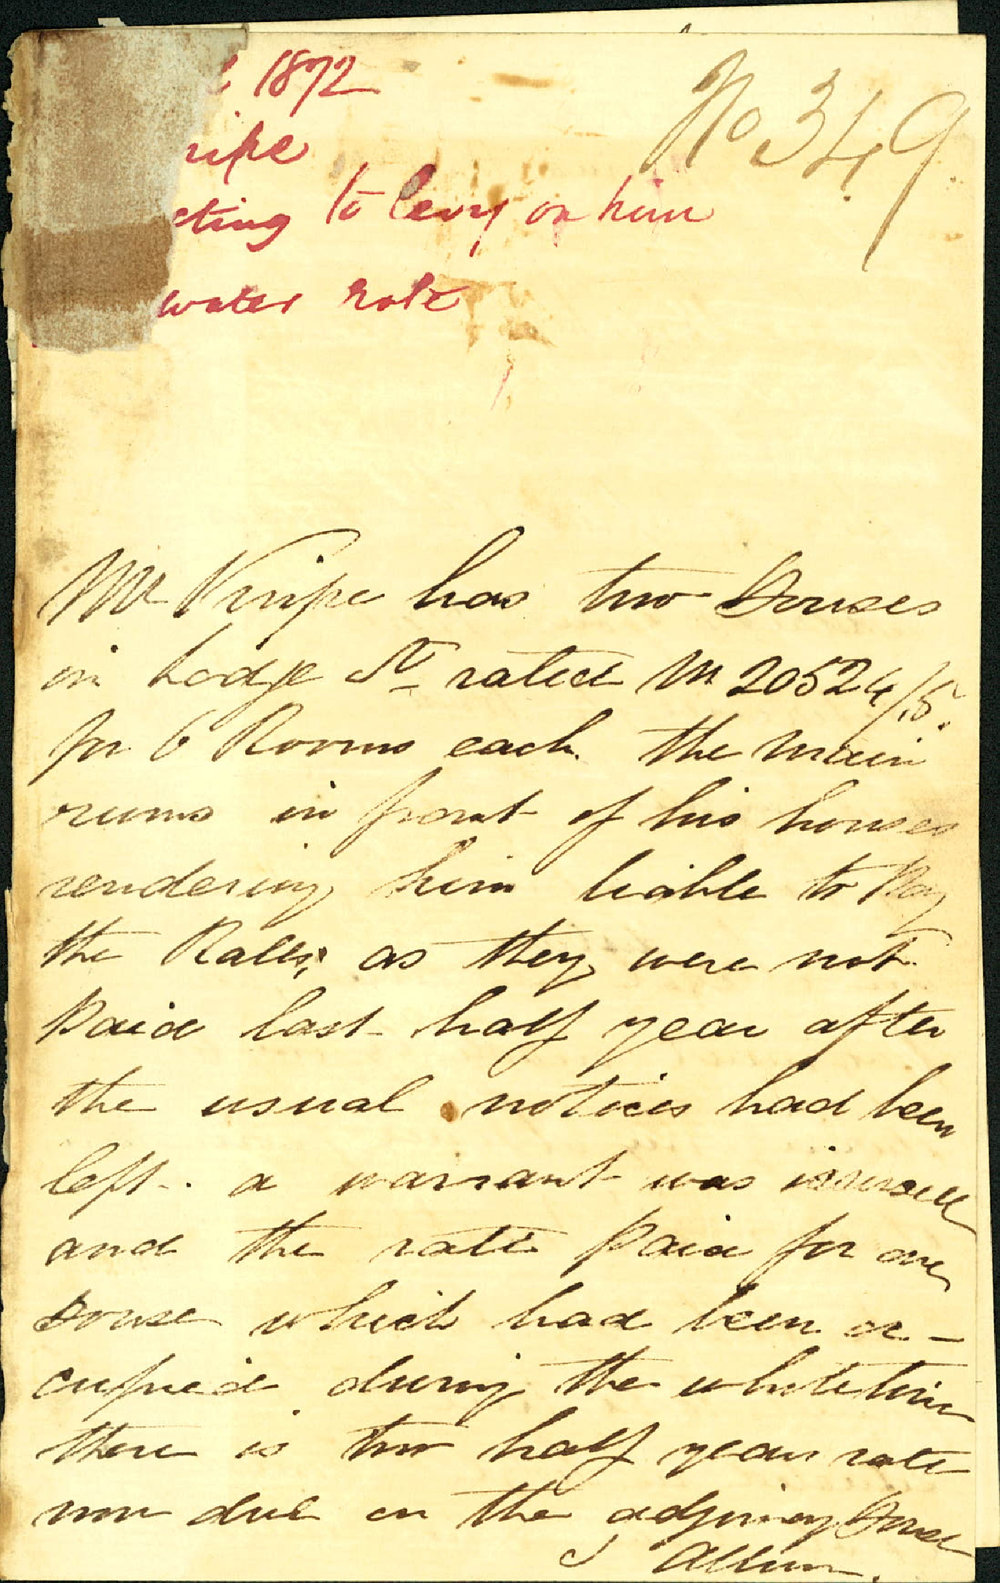 1872
No 349
nipe
cting to levy on him
water rate
Mr Knipe has two Houses
in Lodge St rated Nr 20524/5.
for 6 Rooms each. the main
runs in front of his houses
rendering him liable to Pay
the Rates, as they were not
Paid last half year after
the usual notices had been
left. a warrant was issued
and the rate Paid for one
House which had been oc-
cupied during the whole time
there is two half years rate
now due on the adjoining House